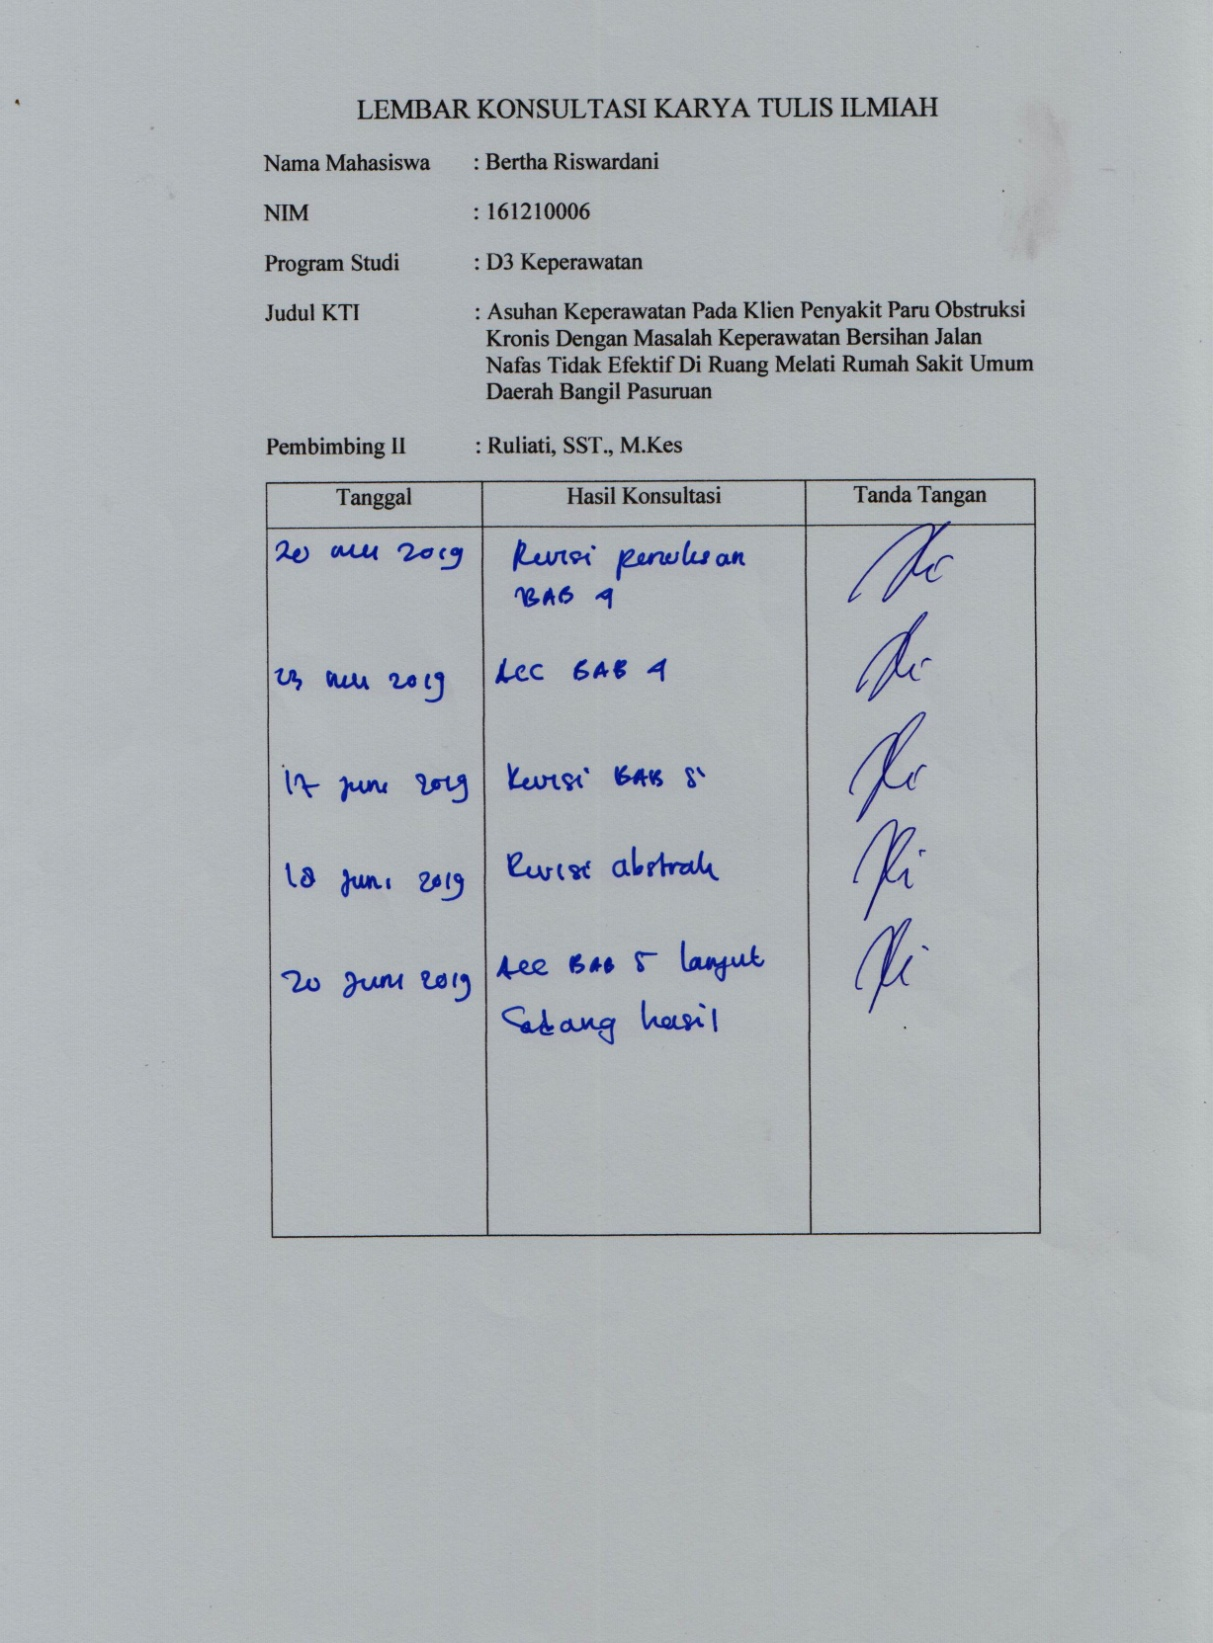 LEMBAR KONSULTASI KARYA TULIS ILMIAH
Nama Mahasiswa : Bertha Riswardani
NIM : 161210006
Program Studi : D3 Keperawatan
Judul KTI : Asuhan Keperawatan Pada Klien Penyakit Paru Obstruksi
Kronis Dengan Masalah Keperawatan Bersihan Jalan
Nafas Tidak Efektif Di Ruang Melati Rumah Sakit Umum
Daerah Bangil Pasuruan
Pembimbing II : Ruliati, SST., M.Kes
Tanggal Hasil Konsultasi Tanda Tangan
20 mei 2019 Revisi penulisan
BAB 4
23 mei 2019 Acc BAB 4
17 Juni 2019 Revisi BAB 5
18 Juni 2019 Revisi abstrak
20 Juni 2019 Acc BAB 5 lanjut
Sidang hasil